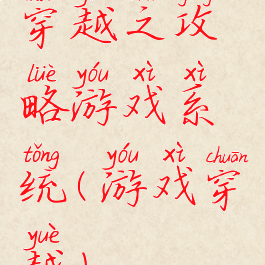 穿越之攻
lüè yóu xì xì
略游戏系
tǒng yóu xì chuān
统(游戏穿
yuè
越)